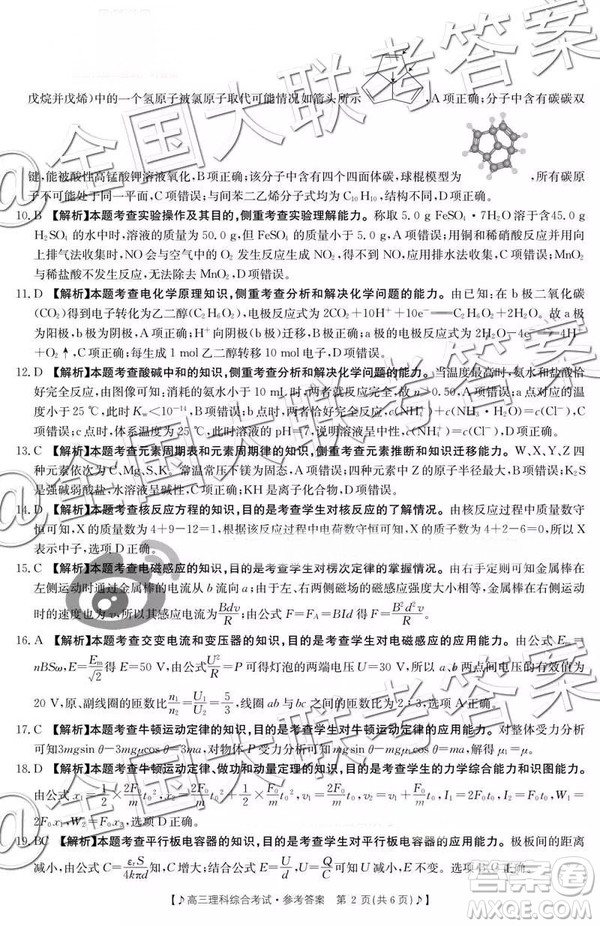 戊烷并戊烯)中的一个氢原子被氯原子取代可能情况如箭头所示 ,A项正确;分子中含有碳碳双
键,能被酸性高锰酸钾溶液氧化,B项正确;该分子中含有四个四面体碳,球棍模型为 ,所有碳
原子不可能处于同一平面,C项错误;与间苯二乙烯分子式均为C₁₀H₁₀,结构不同,D项正确。
10. B 【解析】本题考查实验操作及其目的,侧重考查实验理解能力。称取5.0 g FeSO₄·7H₂O溶于含45.0 g
H₂SO₄的水中时,溶液的质量为50.0 g,但FeSO₄的质量小于5.0 g,A项错误;用铜和稀硝酸反应并用向
上排气法收集时,NO会与空气中的O₂发生反应生成NO₂,应采用排水法收集,C项错误;
与稀盐酸不反应,无法除去,D项错误。
11. D 【解析】本题考查电化学原理知识,侧重考查分析和解决化学问题的能力。由已知:在b极二氧化碳
(CO₂)得到电子生成乙二醇,可得b极的电极反应式为2CO₂+10H⁺+10e⁻
为阳极,b为阴极,A项错误;H⁺向阴极移动,C项错误;a极的电极反应式为2H₂O-4e⁻ 4H⁺
+O₂↑,C项正确;每生成1 mol乙二醇转移10 mol电子,D项错误。
12. D 【解析】本题考查酸碱中和的知识,侧重考查分析和解决化学问题的能力。当温度最高时,氨水和盐酸恰
好完全反应,由图像可知:消耗的氨水小于10 mL时,两者就反应完全,故n>0.50,A项错误;a点对应的温
度小于25 ℃,此时Kw<10⁻¹⁴,B项错误;b点时,两者恰好完全反应,c(NH₄⁺)+c(NH₃·H₂O)=c(Cl⁻),C
项错误;c点时,温度为25 ℃,此时溶液的pH=7,说明溶液呈中性,c(NH₄⁺)=c(Cl⁻),D项正确。
13. C 【解析】本题考查元素周期表和元素周期律的知识,侧重考查元素推断和知识迁移能力。W、X、Y、Z四
种元素依次为Mg、S、K。常温常压下镁为固态,A项错误;四种元素中Z的原子半径最大,B项错误;K₂S
是强碱弱酸盐,水溶液呈碱性,C项正确;KH是离子化合物,D项错误。
14. D 【解析】本题考查核反应方程的知识,目的是考查学生对核反应的了解情况。由核反应过程中质量数守
恒可知,X的质量数为4+9-12=1,根据核反应过程中电荷数守恒可知,X的质子数为4+2-6=0,所以X
表示中子,选项D正确。
15. C 【解析】本题考查电磁感应的知识,目的是考查学生对楞次定律的掌握情况。由右手定则可知金属棒在
左侧运动时通过金属棒上的电流从b流向a;由于左、右两侧的磁感应强度大小相等,金属棒在左、右侧运动
时的速度为v,所以其感应电流为Bdv/R;由公式F=F_A=BId得F=B²d²v/R,选项C正确。
16. A 【解析】本题考查交变电流和变压器的知识,目的是考查学生对电磁感应的应用能力。由公式Eₘ=
nBSω,E=Eₘ/√2得E=50 V,由公式U²/R=P可得灯泡的两端电压U=30 V,所以a、b两点之间的电压为
20 V,原、副线圈的匝数比n₁/n₂=U₁/U₂=5/3,线圈ab与bc之间的匝数比为2:3,选项A正确。
17. C 【解析】本题考查牛顿运动定律的知识,目的是考查学生对牛顿运动定律的应用能力。对整体受力分析
可知3mgsin θ-3mgμcos θ=3ma,对物体P受力分析可得mgsin θ-mgμ₁cos θ=ma,解得μ₁=μ。
18. D 【解析】本题考查牛顿运动定律、做功和动量定理的知识,目的是考查学生的力学综合能力和识图能力。
由公式x₁=1/2×2F₀/m t₀²,x₂=2F₀/m t₀²+1/2×F₀/m t₀²,v₁=2F₀/m t₀,v₂=2F₀/m t₀+F₀/m t₀,I₁=2F₀t₀,I₂=F₀t₀,W₁=
2F₀x₁,W₂=F₀x₂可知,选项D正确。
19. BC 【解析】本题考查平行板电容器的知识,目的是考查学生对平行板电容器的应用能力。极板间的距离
减小,由公式C=εᵣS/4kπd可知C增大;由公式E=U/d,U=Q/C可知E不变,选项B、C正确。
【♪高三理科综合考试·参考答案 第2页(共6页)♪】
@全国大联考答案